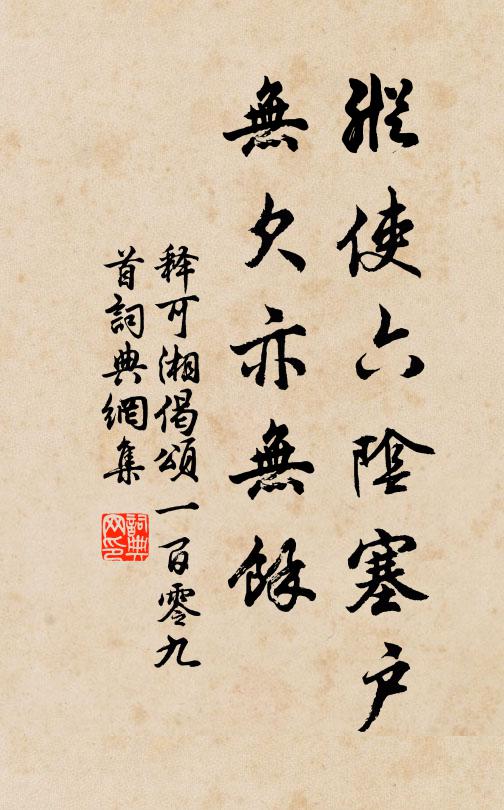 縱使六陰塞戶
無欠亦無餘
釋可湘偈頌一百零九
首詞典網集
詞典
网印